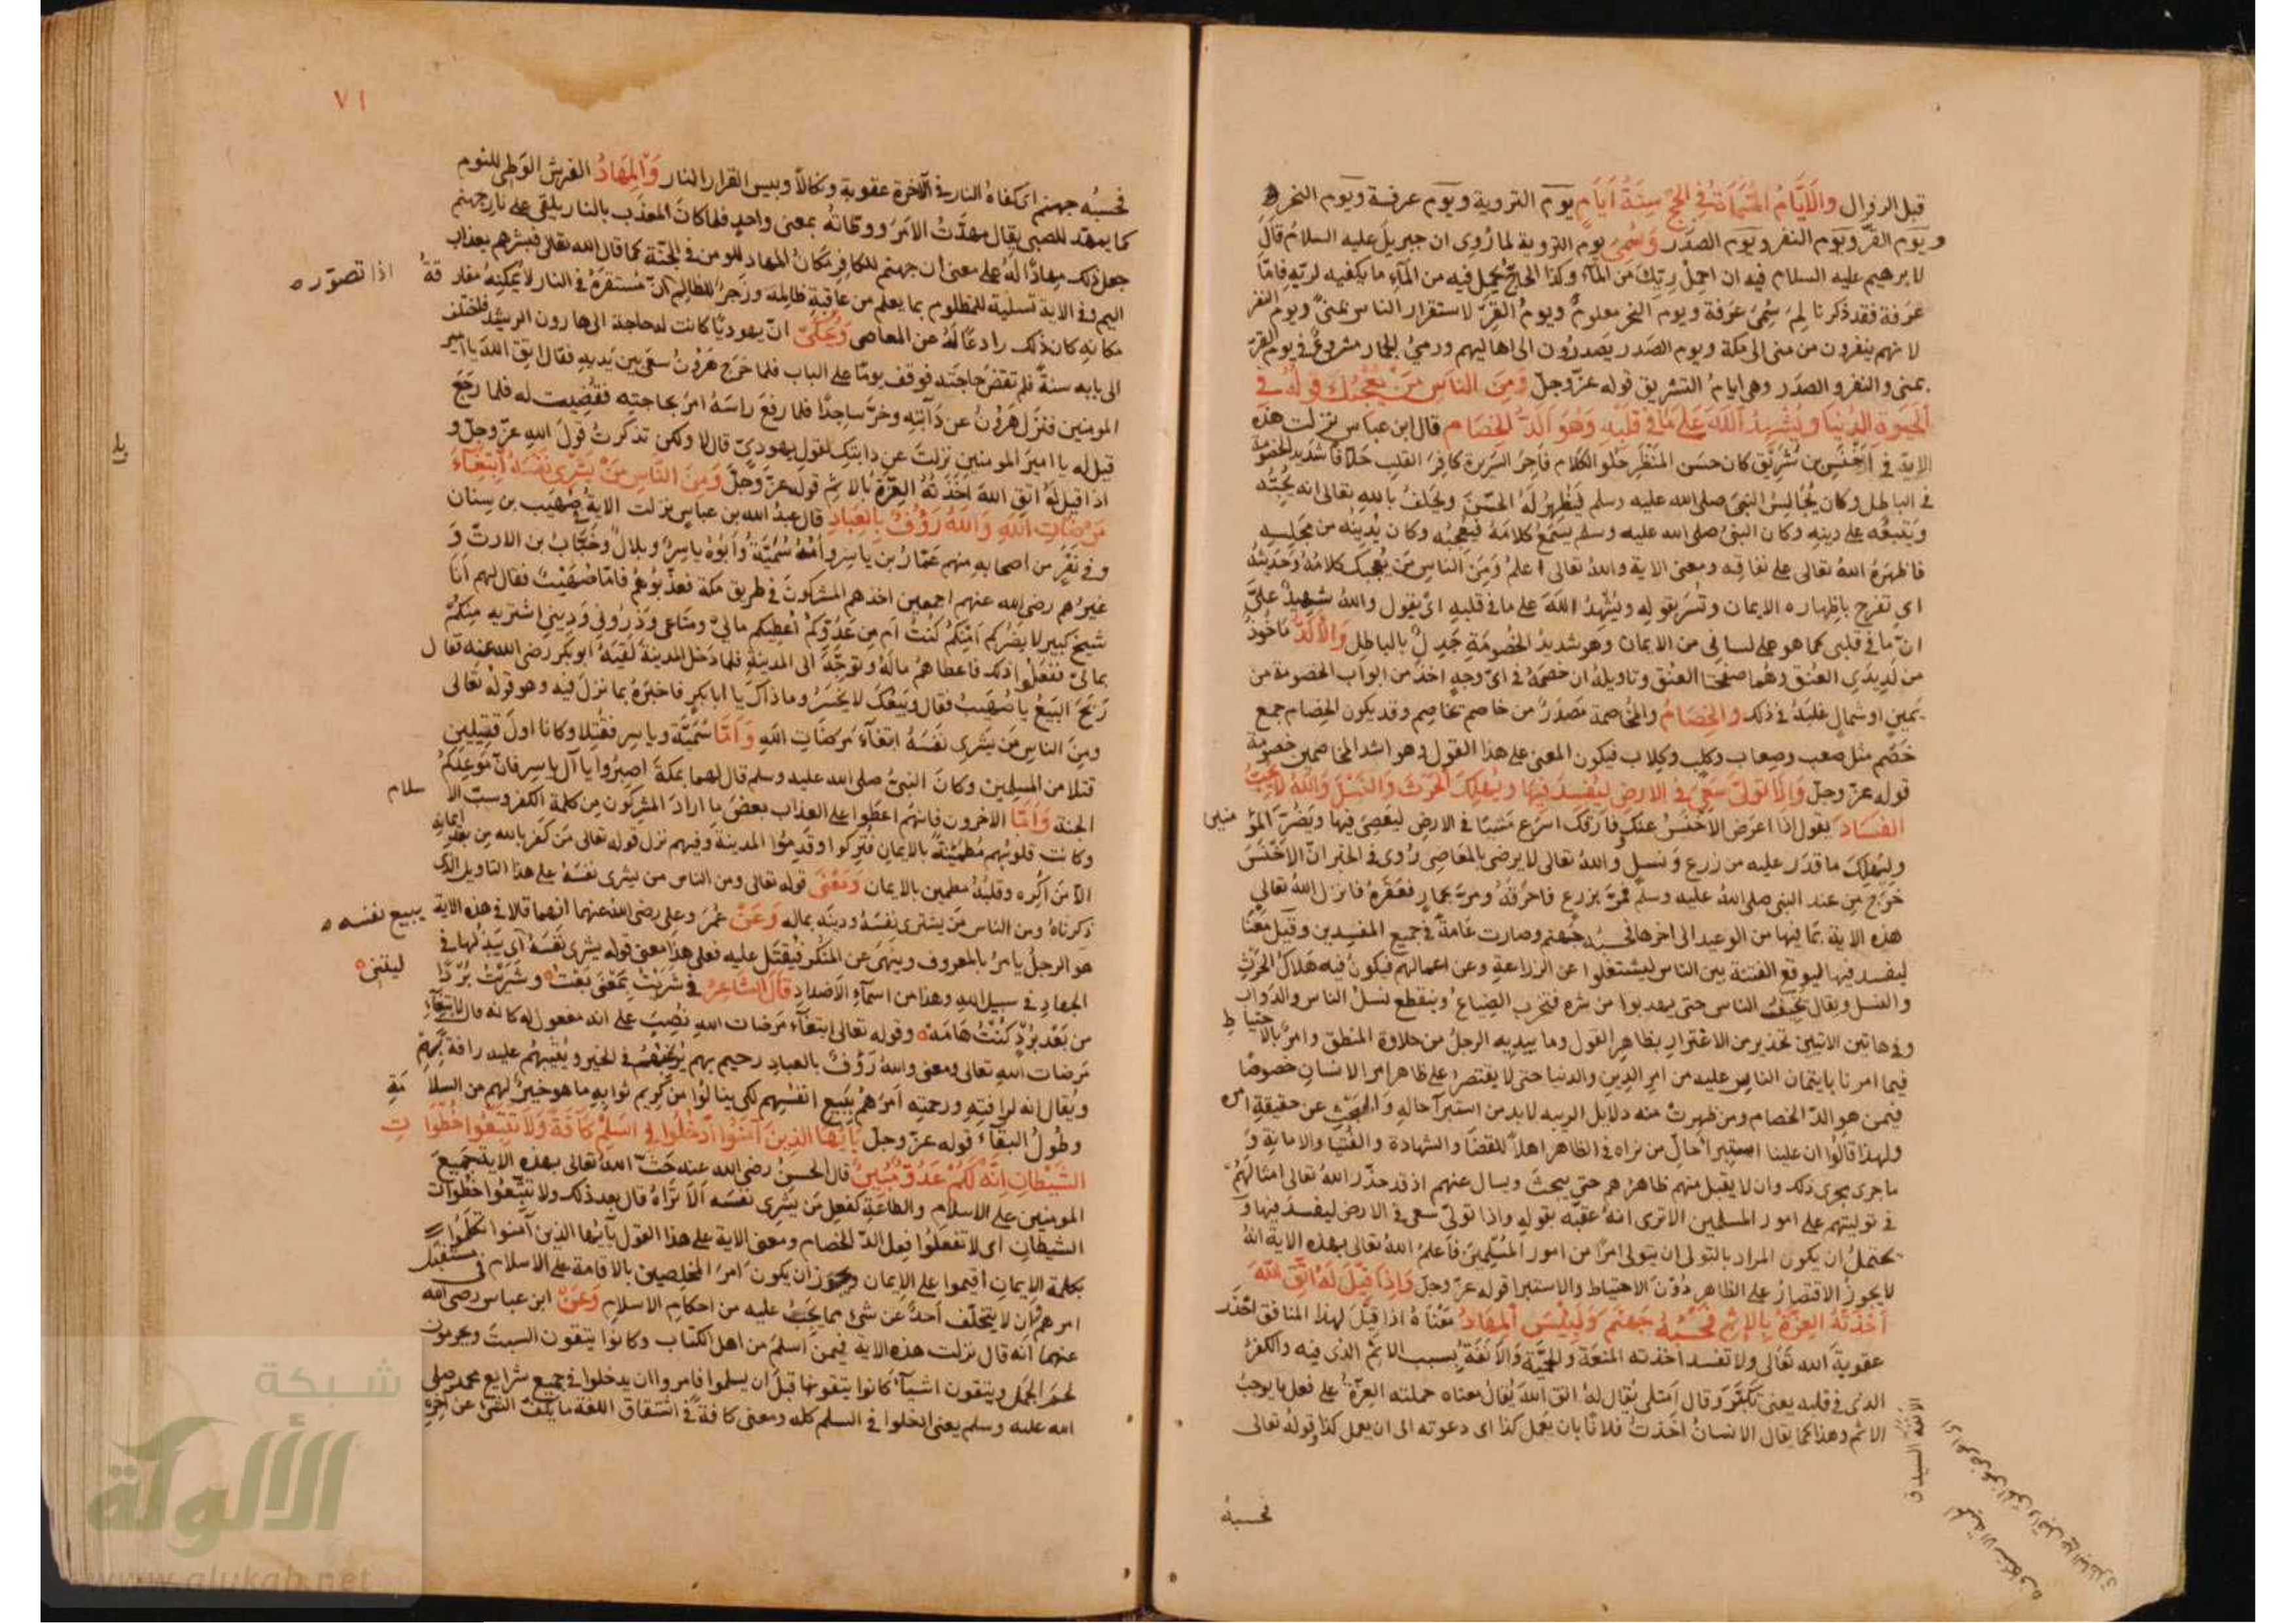 قبل الزوال والايام المسماة في الحج ستة ايام يوم التروية ويوم عرفة ويوم النحر
ويوم القر ويوم النفر ويوم الصدر وسمي يوم التروية لما روي ان جبريل عليه السلام قال
لابرهيم عليه السلام فيه ان احمل ريك من الماء وكذا الحاج يحمل فيه من الماء ما يكفيه لريه فاما
عرفة فقد ذكرنا لم سمي عرفة ويوم النحر معلوم ويوم القر لاستقرار الناس بمنى ويوم النفر
لانهم ينفرون من منى الى مكة ويوم الصدر يصدرون الى اهاليهم ورمي الجمار مشروع في يوم القر
بمنى والنفر والصدر وهي ايام التشريق قوله عز وجل ومن الناس من يعجبك قوله في
الحيوة الدنيا ويشهد الله على ما في قلبه وهو الد الخصام قال ابن عباس نزلت هذه
الاية في اخنس بن شريق كان حسن المنظر حلو الكلام فاجر السريرة كافر القلب حلافا شديد الخصومة
في الباطل وكان يجالس النبي صلى الله عليه وسلم فيظهر له الحسن ويحلف بالله تعالى انه يحبه
ويتبعه على دينه وكان النبي صلى الله عليه وسلم يسمع كلامه فيعجبه وكان يدنيه من مجلسه
فاظهره الله تعالى على نفاقه ومعنى الاية والله تعالى اعلم ومن الناس من يعجبك كلامه وحديثه
اي تفرح باظهاره الايمان وتسر بقوله ويشهد الله على ما في قلبه اي يقول والله شهيد علي
ان ما في قلبي كما هو على لساني من الايمان وهو شديد الخصومة جدل بالباطل والالد ماخوذ
من لديدي العنق وهما صفحتا العنق وتاويله ان خصمه في اي وجه اخذ من ابواب الخصومة من
يمين او شمال غلبه في ذلك والخصام والمخاصمة مصدر من خاصم تخاصم وقد يكون الخصام جمع
خصم مثل صعب وصعاب وكلب وكلاب فيكون المعنى على هذا القول وهو اشد المخاصمين خصومة
قوله عز وجل واذا تولى سعى في الارض ليفسد فيها ويهلك الحرث والنسل والله لا يحب
الفساد يقول اذا اعرض الاخنس عنك وفارقك اسرع مشيا في الارض ليعصي فيها ويضر المؤمنين
وليهلك ما قدر عليه من زرع ونسل والله تعالى لا يرضى بالمعاصي روي في الخبر ان الاخنس
خرج من عند النبي صلى الله عليه وسلم فمر بزرع فاحرقه ومر بحمار فعقره فانزل الله تعالى
هذه الاية بما فيها من الوعيد الى اخرها فحسبه جهنم وصارت عامة في جميع المفسدين وقيل معنا
ليفسد فيها ليوقع الفتنة بين الناس ليشتغلوا عن الزراعة وعن اعمالهم فيكون فيه هلاك الحرث
والنسل ويقال يخيف الناس حتى يهربوا من شره فتخرب الضياع وينقطع نسل الناس والدواب
وفي هاتين الايتين تحذير من الاغترار بظاهر القول وما يبديه الرجل من حلاوة المنطق وامر بالاحتياط
فيما امرنا بايتمان الناس عليه من امر الدين والدنيا حتى لا يقتصر على ظاهر امر الانسان خصوصا
فيمن هو الد الخصام ومن ظهرت منه دلايل الريبه لابد من استبرا حاله والبحث عن حقيقة امره
ولهذا قالوا ان علينا استبرا حال من نراه في الظاهر اهلا للقضا والشهادة والفتيا والامانة و
ما جرى مجرى ذلك وان لا يقبل منهم ظاهرهم حتى يبحث ويسال عنهم اذ قد حذر الله تعالى امثالهم
في توليتهم على امور المسلمين الا ترى انه عقبه بقوله واذا تولى سعى في الارض ليفسد فيها و
يحتمل ان يكون المراد بالتولى ان يتولى امرا من امور المسلمين فاعلم الله تعالى بهذه الاية انه
لا يجوز الاقتصار على الظاهر دون الاحتياط والاستبرا قوله عز وجل واذا قيل له اتق الله
اخذته العزة بالاثم فحسبه جهنم ولبئس المهاد معناه اذا قيل لهذا المنافق احذر
عقوبة الله تعالى ولا تفسد اخذته المنعة والحمية والانفة بسبب الاثم الذى فيه والكفر
الذى في قلبه يعني تكبر وقال امثلي يقال له اتق الله يقال معناه حملته العزة على فعل ما يوجب
الاثم وهذا كما يقال الانسان اخذت فلانا بان يعمل كذا اى دعوته الى ان يعمل كذا وقوله تعالى
فحسبه
٧١
فحسبه جهنم اى كفاه النار في الاخرة عقوبة ونكالا وبيس القرار النار والمهاد الفرش الوطي للنوم
كما يمهد للصبي يقال مهدت الامر ووطاته بمعنى واحد فلما كان المعذب بالنار يلقى على نار جهنم
جعل ذلك مهادا له على معنى ان جهنم للكافر مكان المهاد للمومن في الجنة كما قال الله تعالى فبشرهم بعذاب
اليم وفي الاية تسلية للمظلوم بما يعلم من عاقبة ظالمه وزجر للظالم ان مستقره في النار لا يمكنه مفارقة اذا تصوره
مكانه كان ذلك رادعا له عن المعاصي ويحكى ان يهوديا كانت له حاجة الى هارون الرشيد فاختلف
الى بابه سنة فلم تقض حاجته فوقف يوما على الباب فلما خرج هرون سعى بين يديه فقال اتق الله يا امير
المومنين فنزل هرون عن دابته وخر ساجدا فلما رفع راسه امر بحاجته فقضيت له فلما رجع
قيل له يا امير المومنين نزلت عن دابتك لقول يهودي قال لا ولكن تذكرت قول الله عز وجل و
اذا قيل له اتق الله اخذته العزة بالاثم قوله عز وجل ومن الناس من يشرى نفسه ابتغاء
مرضات الله والله رؤف بالعباد قال عبد الله بن عباس نزلت الاية في صهيب بن سنان
وفي نفر من اصحابه منهم عمار بن ياسر وامه سمية وابوه ياسر وبلال وخباب بن الارت و
غيرهم رضي الله عنهم اجمعين اخذهم المشركون في طريق مكة فعذبوهم فاما صهيب فقال لهم انا
شيخ كبير لا يضركم امنكم كنت ام من عدوكم اعطيكم مالي ومتاعي وذروني وديني اشتريه منكم
بمالي ففعلوا ذلك فاعطاهم ماله وتوجه الى المدينة فلما دخل المدينة لقيه ابو بكر رضي الله عنه فقال
ربح البيع يا صهيب فقال وبيعك لا يخسر وما ذاك يا ابا بكر فاخبره بما نزل فيه وهو قوله تعالى
ومن الناس من يشرى نفسه ابتغاء مرضات الله واما سمية وياسر فقتلا وكانا اول قتيلين
قتلا من المسلمين وكان النبي صلى الله عليه وسلم قال لهما بمكة اصبروا يا آل ياسر فان موعدكم
الجنة واما الاخرون فانهم اعطوا على العذاب بعض ما اراد المشركون من كلمة الكفر وسب الاسلام
وكانت قلوبهم مطمئنة بالايمان فتركوا وقدموا المدينة وفيهم نزل قوله تعالى من كفر بالله من بعد ايمانه
الا من اكره وقلبه مطمين بالايمان ومعنى قوله تعالى ومن الناس من يشرى نفسه على هذا التاويل الذى
ذكرناه ومن الناس من يشترى نفسه ودينه بماله وعن عمر وعلي رضي الله عنهما انهما قالا في هذه الاية يبيع نفسه
هو الرجل يامر بالمعروف وينهى عن المنكر فيقتل عليه فعلى هذا معنى قوله يشرى نفسه اى يبذلها في
الجهاد في سبيل الله وهذا من اسماء الاضداد قال الشاعر في شريت بمعنى بعت وشريت بردا ليتني
من بعد برد كنت هامه وقوله تعالى ابتغاء مرضات الله نصب على انه مفعول له كانه قال لابتغاء
مرضات الله تعالى ومعنى والله رؤف بالعباد رحيم بهم يرغبهم في الخير ويثيبهم عليه رافة بهم
ويقال انه لرافته ورحمته امرهم ببيع انفسهم لكي ينالوا من كريم ثوابه ما هو خير لهم من السلامة
وطول البقاء قوله عز وجل يا ايها الذين آمنوا ادخلوا في السلم كافة ولا تتبعوا خطوات
الشيطان انه لكم عدو مبين قال الحسن رضي الله عنه حث الله تعالى بهذه الاية جميع
المومنين على الاسلام والطاعة كفعل من يشرى نفسه الا تراه قال بعد ذلك ولا تتبعوا خطوات
الشيطان اى لا تفعلوا فعل الد الخصام ومعنى الاية على هذا القول يا ايها الذين آمنوا
بكلمة الايمان اقيموا على الايمان ويجوز ان يكون امر المخلصين بالاقامة على الاسلام في مستقبل
امرهم وان لا يتخلف احد عن شئ مما يجب عليه من احكام الاسلام وعن ابن عباس رضي الله
عنهما انه قال نزلت هذه الاية فيمن اسلم من اهل الكتاب وكانوا يتقون السبت ويحرمون
لحم الجمل ويتقون اشياء كانوا يتقونها قبل ان يسلموا فامروا ان يدخلوا في جميع شرايع محمد صلى
الله عليه وسلم يعني ادخلوا في السلم كله ومعنى كافة في اشتقاق اللغة ما يكف الشئ عن اخره
شبكة
الألوكة
www.alukah.net